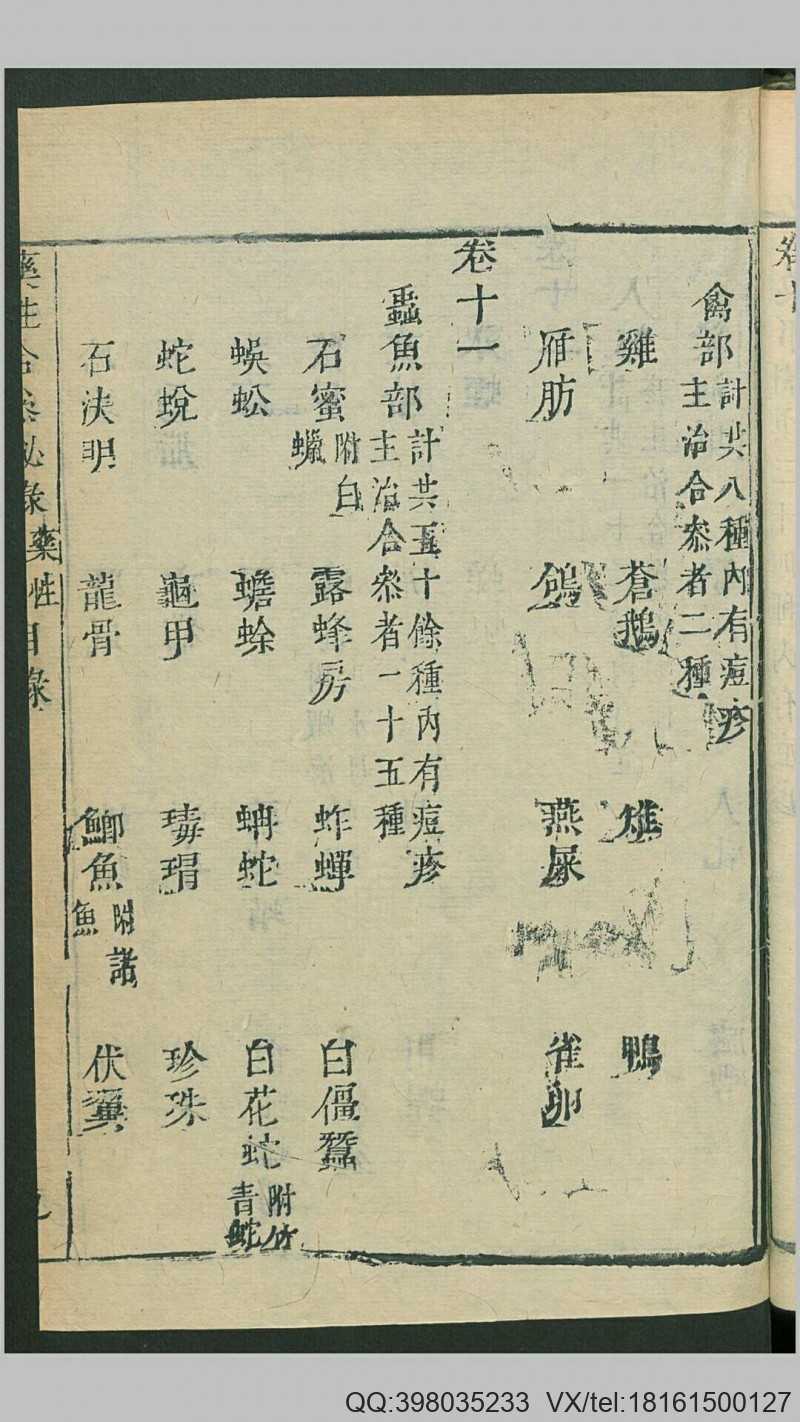 禽部計共八種內有痘疹主治合叅者二種
雞 蒼鵝 雉 鴨
雁肪 鴿 燕屎 雀卵
卷十一
蟲魚部計共五十餘種內有痘疹主治合叅者一十五種
石蜜附白蠟 露蜂房 蚱蟬 白僵蠶
蜈蚣 蟾蜍 蚺蛇 白花蛇附竹青蛇
蛇蛻 龜甲 瑇瑁 珍珠
石決明 龍骨 鯽魚附諸魚 伏翼
藥性合叅祕錄 藥性目錄
卷十
QQ:398035233 VX/tel:18161500127